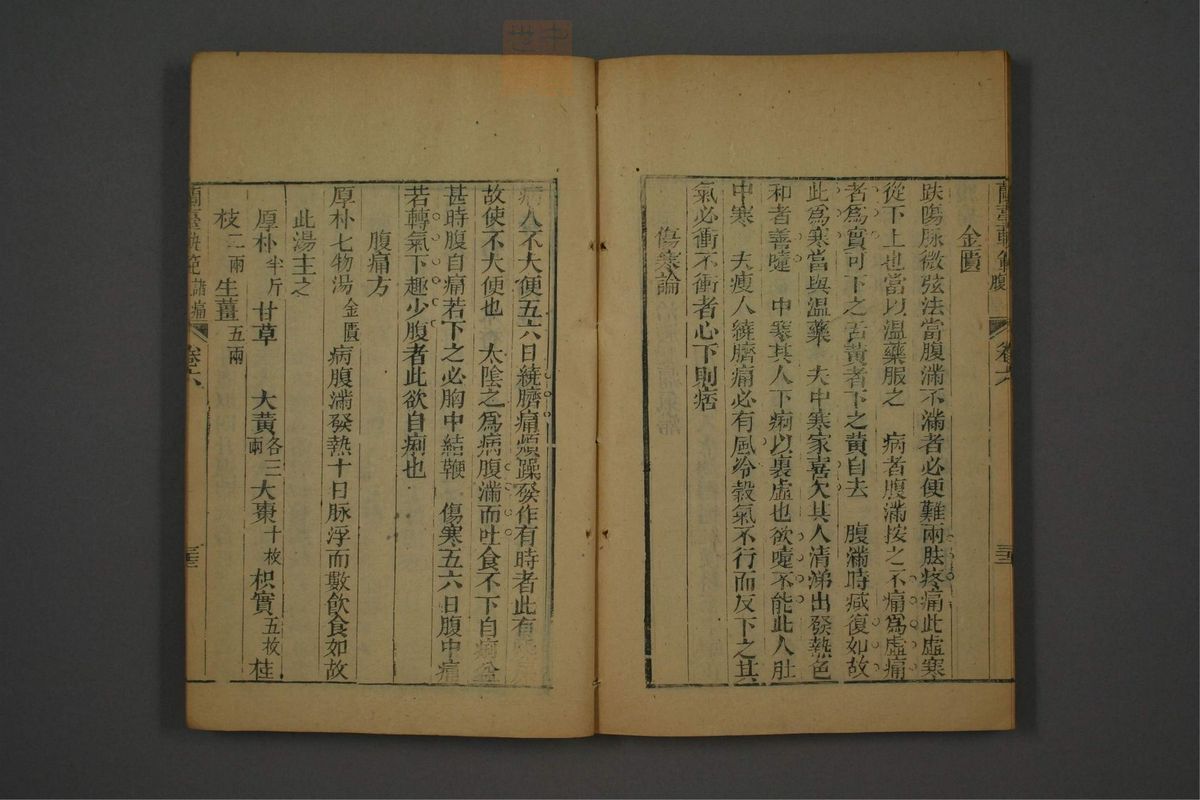 蘭臺軌範 腹 卷六 三三
金匱
趺陽脉微弦法當腹滿不滿者必便難兩胠疼痛此虛寒
從下上也當以温藥服之 病者腹滿按之不痛爲虛痛
者爲實可下之舌黃者下之黃自去 腹滿時減復如故
此爲寒當與温藥 夫中寒家喜欠其人清涕出發熱色
和者善嚏 中寒其人下痢以裏虛也欲嚏不能此人肚
中寒 夫瘦人繞臍痛必有風冷穀氣不行而反下之其
氣必衝不衝者心下則痞
傷寒論
病人不大便五六日繞臍痛煩躁發作有時者此有
故使不大便也 太陰之爲病腹滿而吐食不下自痢益
甚時腹自痛若下之必胸中結鞭 傷寒五六日腹中痛
若轉氣下趣少腹者此欲自痢也
腹痛方
厚朴七物湯 金匱 病腹滿發熱十日脉浮而數飲食如故
此湯主之
厚朴 半斤 甘草 大黃 各三兩 大棗 十枚 枳實 五枚 桂
枝 二兩 生薑 五兩
蘭臺軌範 諸痛 卷六 三三